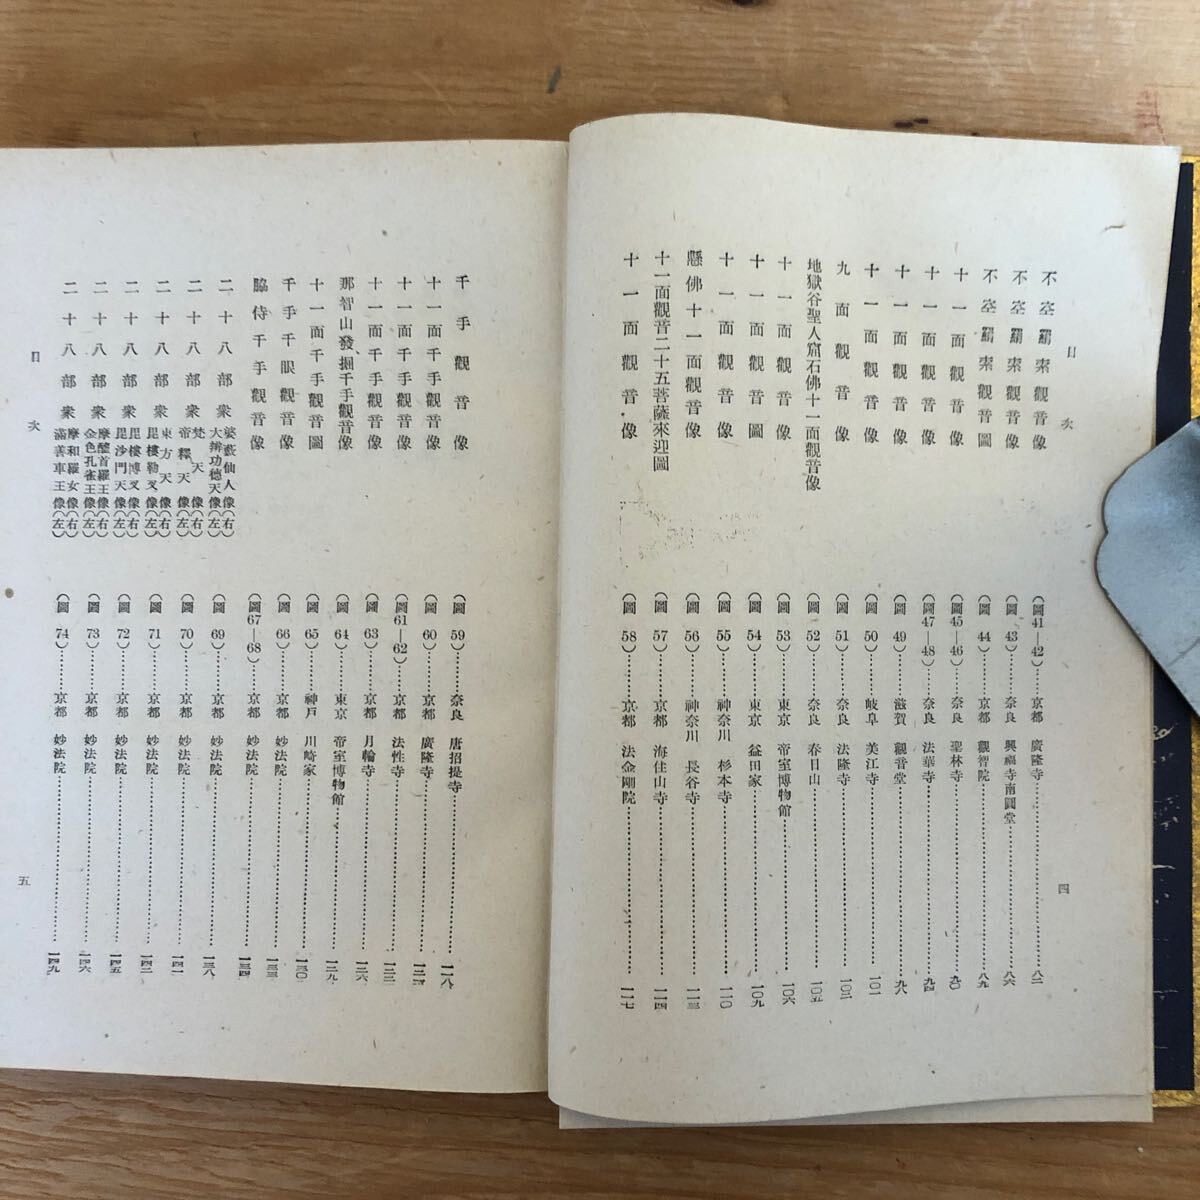 目次
不空羂索觀音像(圖41—42)……京都 廣隆寺……八二
不空羂索觀音像(圖 43)……奈良 興福寺南圓堂……八六
不空羂索觀音圖(圖 44)……京都 觀智院……八九
十一面觀音像(圖45—46)……奈良 聖林寺……九〇
十一面觀音像(圖47—48)……奈良 法華寺……九四
十一面觀音像(圖 49)……滋賀 觀音堂……九八
十一面觀音像(圖 50)……岐阜 美江寺……一〇一
九面觀音像(圖 51)……奈良 法隆寺……一〇三
地獄谷聖人窟石佛十一面觀音像(圖 52)……奈良 春日山……一〇五
十一面觀音像(圖 53)……東京 帝室博物館……一〇六
十一面觀音圖(圖 54)……東京 益田家……一〇九
十一面觀音像(圖 55)……神奈川 杉本寺……一一〇
懸佛十一面觀音像(圖 56)……神奈川 長谷寺……一一三
十一面觀音二十五菩薩來迎圖(圖 57)……京都 海住山寺……一一四
十一面觀音像(圖 58)……京都 法金剛院……一一七
四
千手觀音像(圖 59)……奈良 唐招提寺……一一八
十一面千手觀音像(圖 60)……京都 廣隆寺
十一面千手觀音像(圖61—62)……京都 法性寺……一二三
十一面千手觀音像(圖 63)……京都 月輪寺……一二六
那智山發掘千手觀音像(圖 64)……東京 帝室博物館……一二九
十一面千手觀音圖(圖 65)……神戸 川崎家……一三〇
千手千眼觀音像(圖 66)……京都 妙法院……一三三
脇侍千手觀音像(圖67—68)……京都 妙法院……一三四
二十八部衆 婆藪仙人像(右) 大辨功德天像(左)(圖 69)……京都 妙法院……一三八
二十八部衆 梵天像(右) 帝釋天像(左)(圖 70)……京都 妙法院……一四一
二十八部衆 東方天像(右) 毘樓勒叉像(左)(圖 71)……京都 妙法院……一四二
二十八部衆 毘樓博叉像(右) 毘沙門天像(左)(圖 72)……京都 妙法院……一四五
二十八部衆 摩醯首羅王像(右) 金色孔雀王像(左)(圖 73)……京都 妙法院……一四六
二十八部衆 摩和羅女像(右) 滿善車王像(左)(圖 74)……京都 妙法院……一四九
目次
五